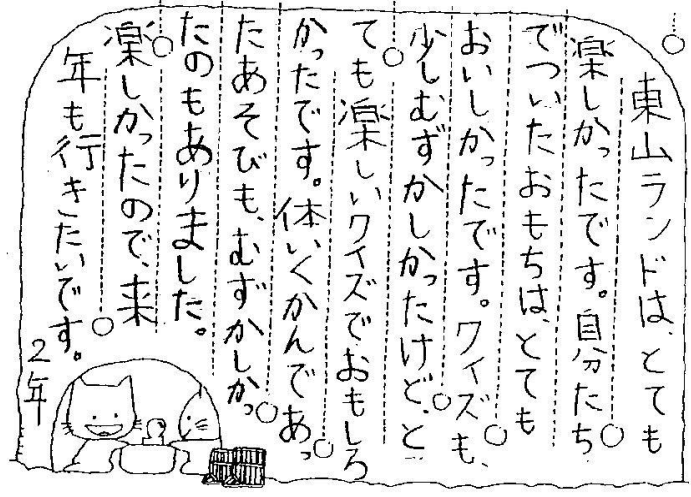 東山ランドは、とても
楽しかったです。自分たち
でついたおもちは、とても
おいしかったです。クイズも、
少しむずかしかったけど、と
ても楽しいクイズでおもしろ
かったです。体いくかんであっ
たあそびも、むずかしかっ
たのもありました。
楽しかったので、来
年も行きたいです。
2年